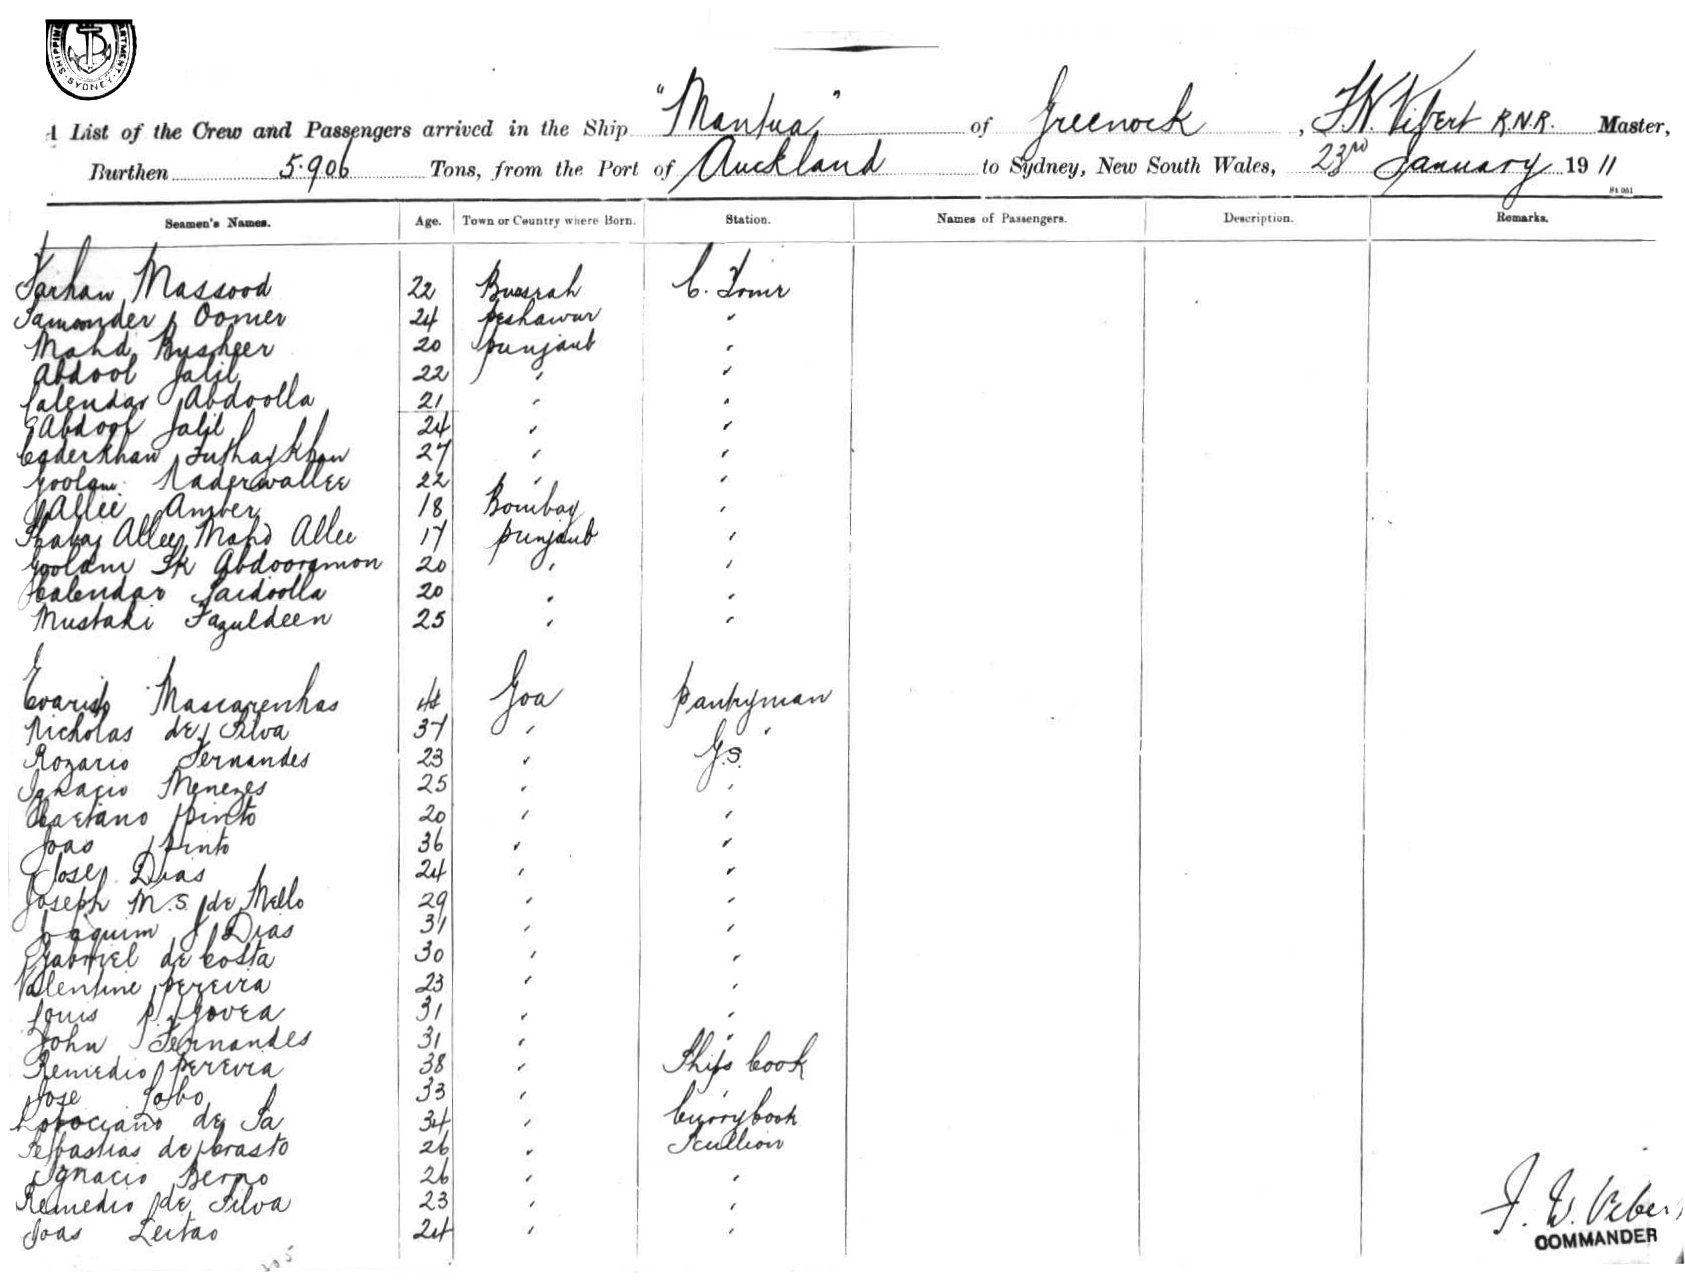 SHIPPING DEPARTMENT · SYDNEY
A List of the Crew and Passengers arrived in the Ship "Mantua" of Greenock, F.W. Vibert R.N.R. Master,
Burthen 5.906 Tons, from the Port of Auckland to Sydney, New South Wales, 23rd January 1911
Seamen's Names. Age. Town or Country where Born. Station. Names of Passengers. Description. Remarks.
Farhan Massood 22 Bussrah C. Tomr
Samonder Oomer 24 Peshawur "
Mahd Busheer 20 Punjaub "
Abdool Jalil 22 " "
Calendar Abdoolla 21 " "
Abdool Jalil 24 " "
Caderkhan Futhaykhan 27 " "
Goolam Naderwallee 22 " "
Allee Amber 18 Bombay "
Allee Mahd Allee 17 Punjaub "
Goolam Sk Abdooramon 20 " "
Calendar Saidoolla 20 " "
Mustaki Fazuldeen 25 " "
Evaristo Mascarenhas 41 Goa Pantryman
Nicholas de Silva 37 " "
Rozario Fernandes 23 " G.S.
Ignacio Menezes 25 " "
Caetano Pinto 20 " "
Joao Pinto 36 " "
Jose Dias 24 " "
Joseph M.S. de Mello 29 " "
Joaquim J Dias 31 " "
Gabriel de Costa 30 " "
Valentine Pereira 23 " "
Louis P. Govea 31 " "
John Fernandes 31 " "
Remedio Pereira 38 " Ships Cook
Jose Lobo 33 " "
de Sa 34 " Curry Cook
Sebastias de Crasto 26 " Scullion
Ignacio Berno 26 " "
Remedio de Silva 23 " "
Joas Leitao 24 " "
F. W. Viber
COMMANDER